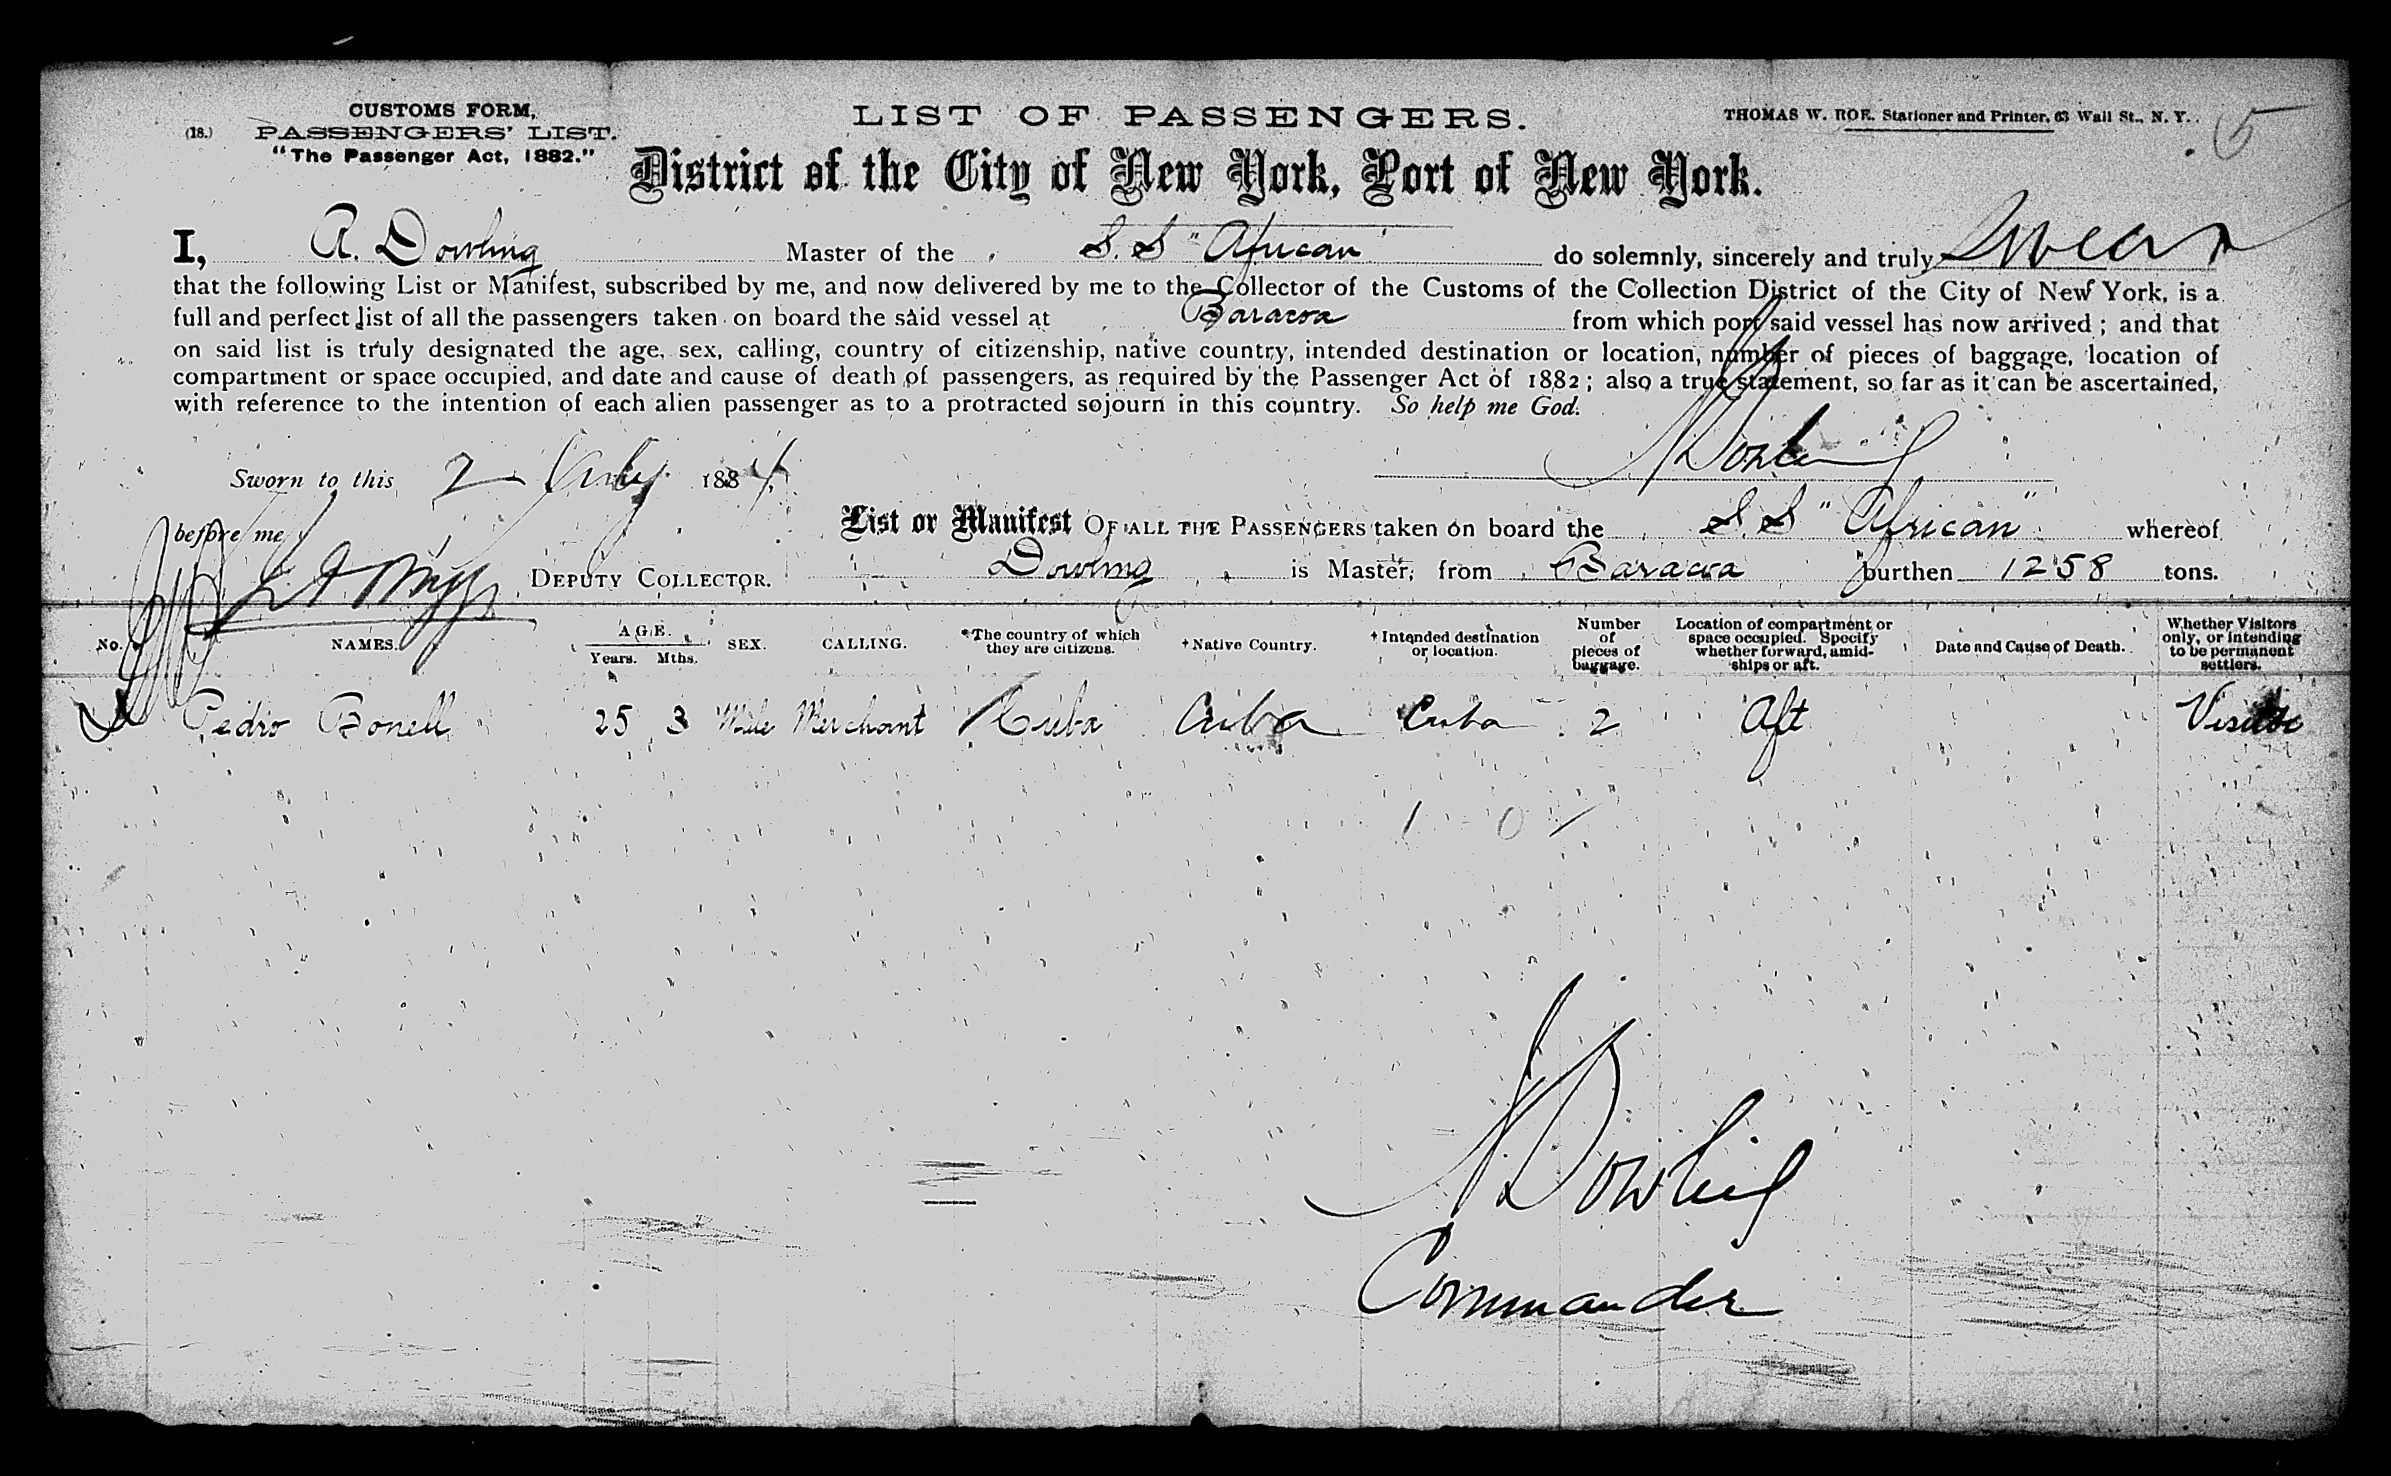 CUSTOMS FORM,
(18.) PASSENGERS' LIST.
"The Passenger Act, 1882."
LIST OF PASSENGERS.
THOMAS W. ROE. Stationer and Printer, 63 Wall St., N. Y.
5
District of the City of New York, Port of New York.
I, A. Dowling Master of the S.S "African" do solemnly, sincerely and truly Swear
that the following List or Manifest, subscribed by me, and now delivered by me to the Collector of the Customs of the Collection District of the City of New York, is a
full and perfect list of all the passengers taken on board the said vessel at Baracoa from which port said vessel has now arrived; and that
on said list is truly designated the age, sex, calling, country of citizenship, native country, intended destination or location, number of pieces of baggage, location of
compartment or space occupied, and date and cause of death of passengers, as required by the Passenger Act of 1882; also a true statement, so far as it can be ascertained,
with reference to the intention of each alien passenger as to a protracted sojourn in this country. So help me God.
A Dowling
Sworn to this 2 July 1884
before me
DEPUTY COLLECTOR.
List or Manifest OF ALL THE PASSENGERS taken on board the S.S "African" whereof
Dowling is Master, from Baracoa burthen 1258 tons.
No. NAMES. AGE. Years. Mths. SEX. CALLING. *The country of which they are citizens. †Native Country. †Intended destination or location. Number of pieces of baggage. Location of compartment or space occupied. Specify whether forward, amidships or aft. Date and Cause of Death. Whether Visitors only, or intending to be permanent settlers.
Pedro Bonell 25 3 Male Merchant Cuba Cuba Cuba 2 Aft Visitor
1 0 /
A Dowling
Commander